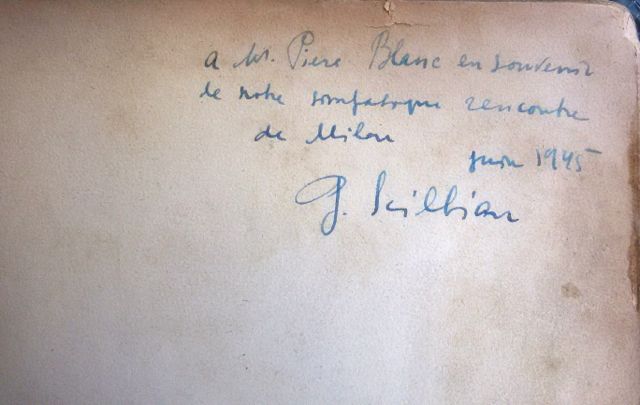 a Mr. Piere Blanc en souvenir
de notre simpatique rencontre
de Milan
juin 1945
G. Scilbian